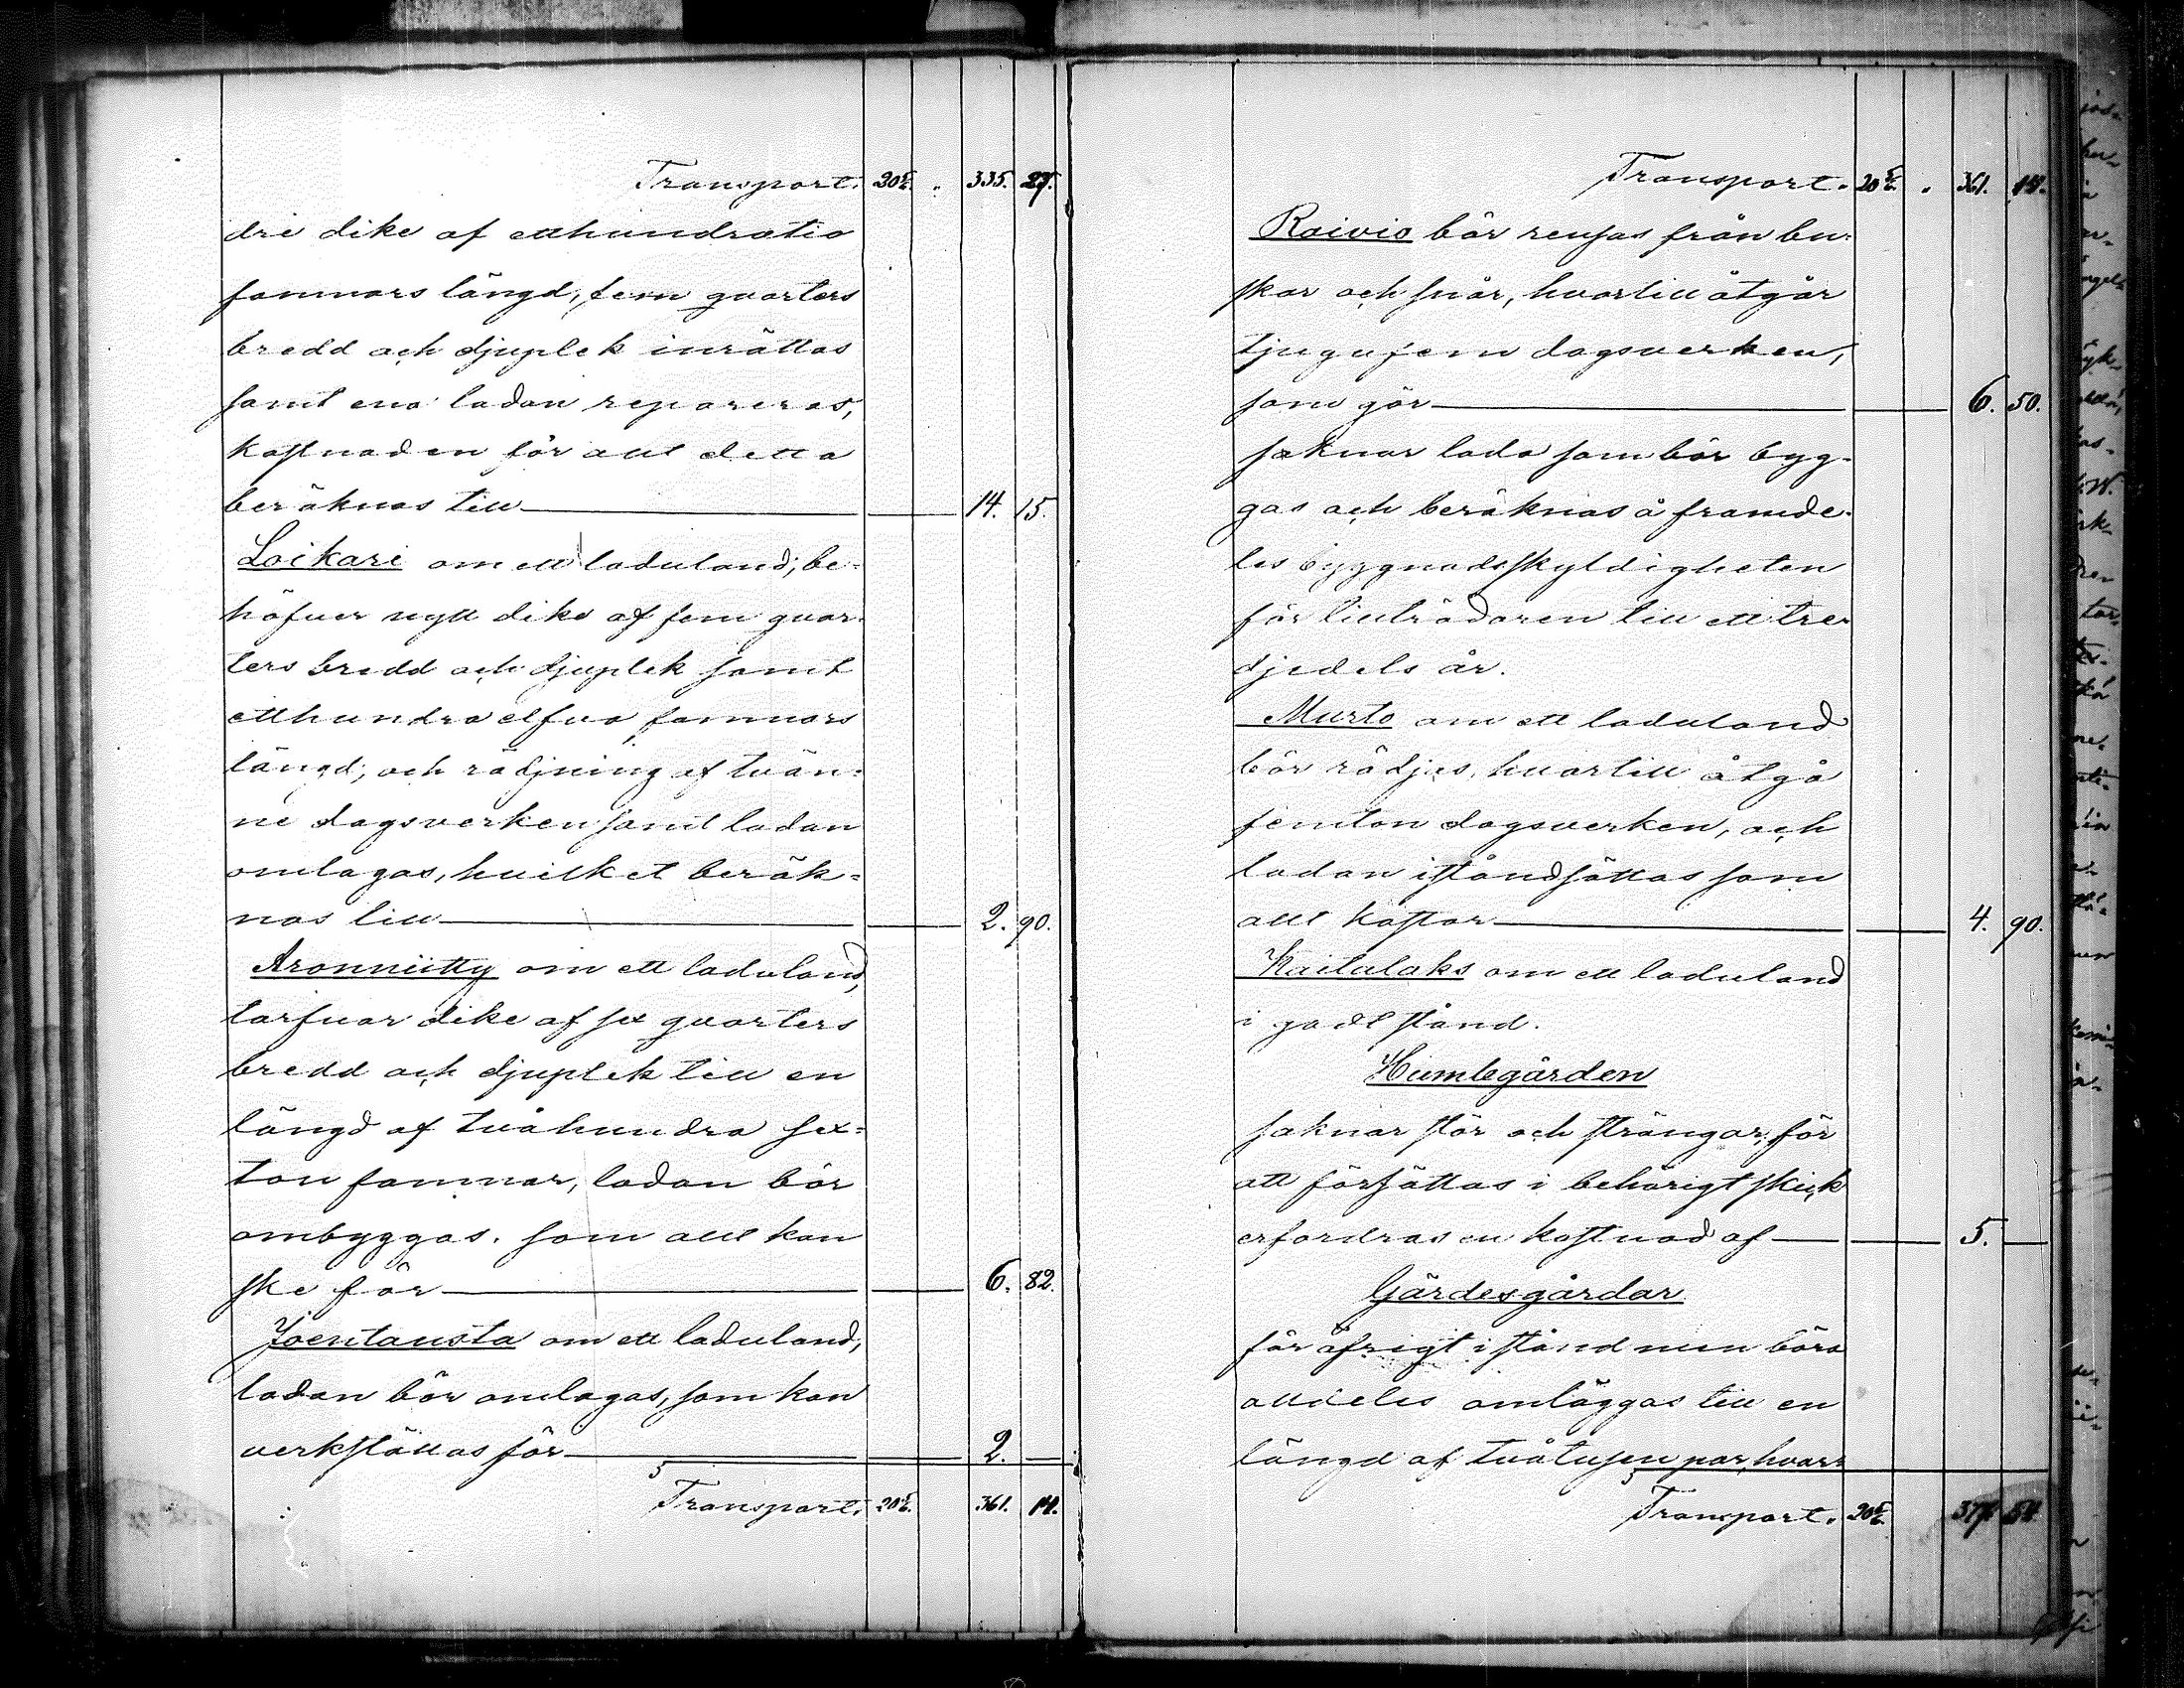 Transport. 20 5/6. " 335. 27.
dri dike af etthundratio
famnars längd, fem qvarters
bredd och djuplek inrättas
samt ena ladan repareras,
kostnaden för allt detta
beräknas till 14. 15.
Loikari om ett laduland; be-
höfver nytt dike af fem qvar-
ters bredd och djuplek samt
etthundra elfva famnars
längd; och rödjning af tvän-
ne dagsverken samt ladan
omlagas, hvilket beräk-
nas till 2. 90.
Aronniitty om ett laduland,
tarfvar dike af sex qvarters
bredd och djuplek till en
längd af tvåhundra sex-
ton famnar, ladan bör
ombyggas. som allt kan
ske för 6. 82.
Joentausta om ett laduland,
ladan bör omlagas, som kan
verkställas för 2. —
Transport. 20 5/6. 361. 14.
Transport. 20 5/6. " 361. 14.
Raivio bör rensas från bu-
skar och snår, hvartill åtgår
tjugufem dagsverken,
som gör 6. 50.
saknar lada som bör byg-
gas och beräknas å framde-
les byggnadsskyldigheten
för tillträdaren till ett tre-
djedels år.
Murto om ett laduland
bör rödjas, hvartill åtgå
femton dagsverken, och
ladan iståndsättas som
allt kostar 4. 90.
Kaitalaks om ett laduland
i godt stånd.
Humlegården
saknar stör och stränger, för
att försättas i behörigt skick
erfordras en kostnad af 5. —
Gärdesgårdar
för öfrigt i stånd men böra
alldeles omläggas till en
längd af tvåtusen par, hvar-
Transport. 20 5/6. 377. 54.